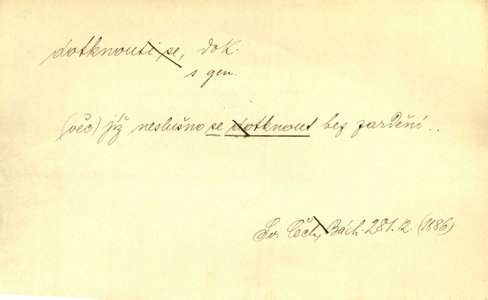 dotknouti se, dok.
s gen.
(věc) jíž neslušno se dotknout bez zardění..
Sv. Čech, Bách. 281.12. (1886)